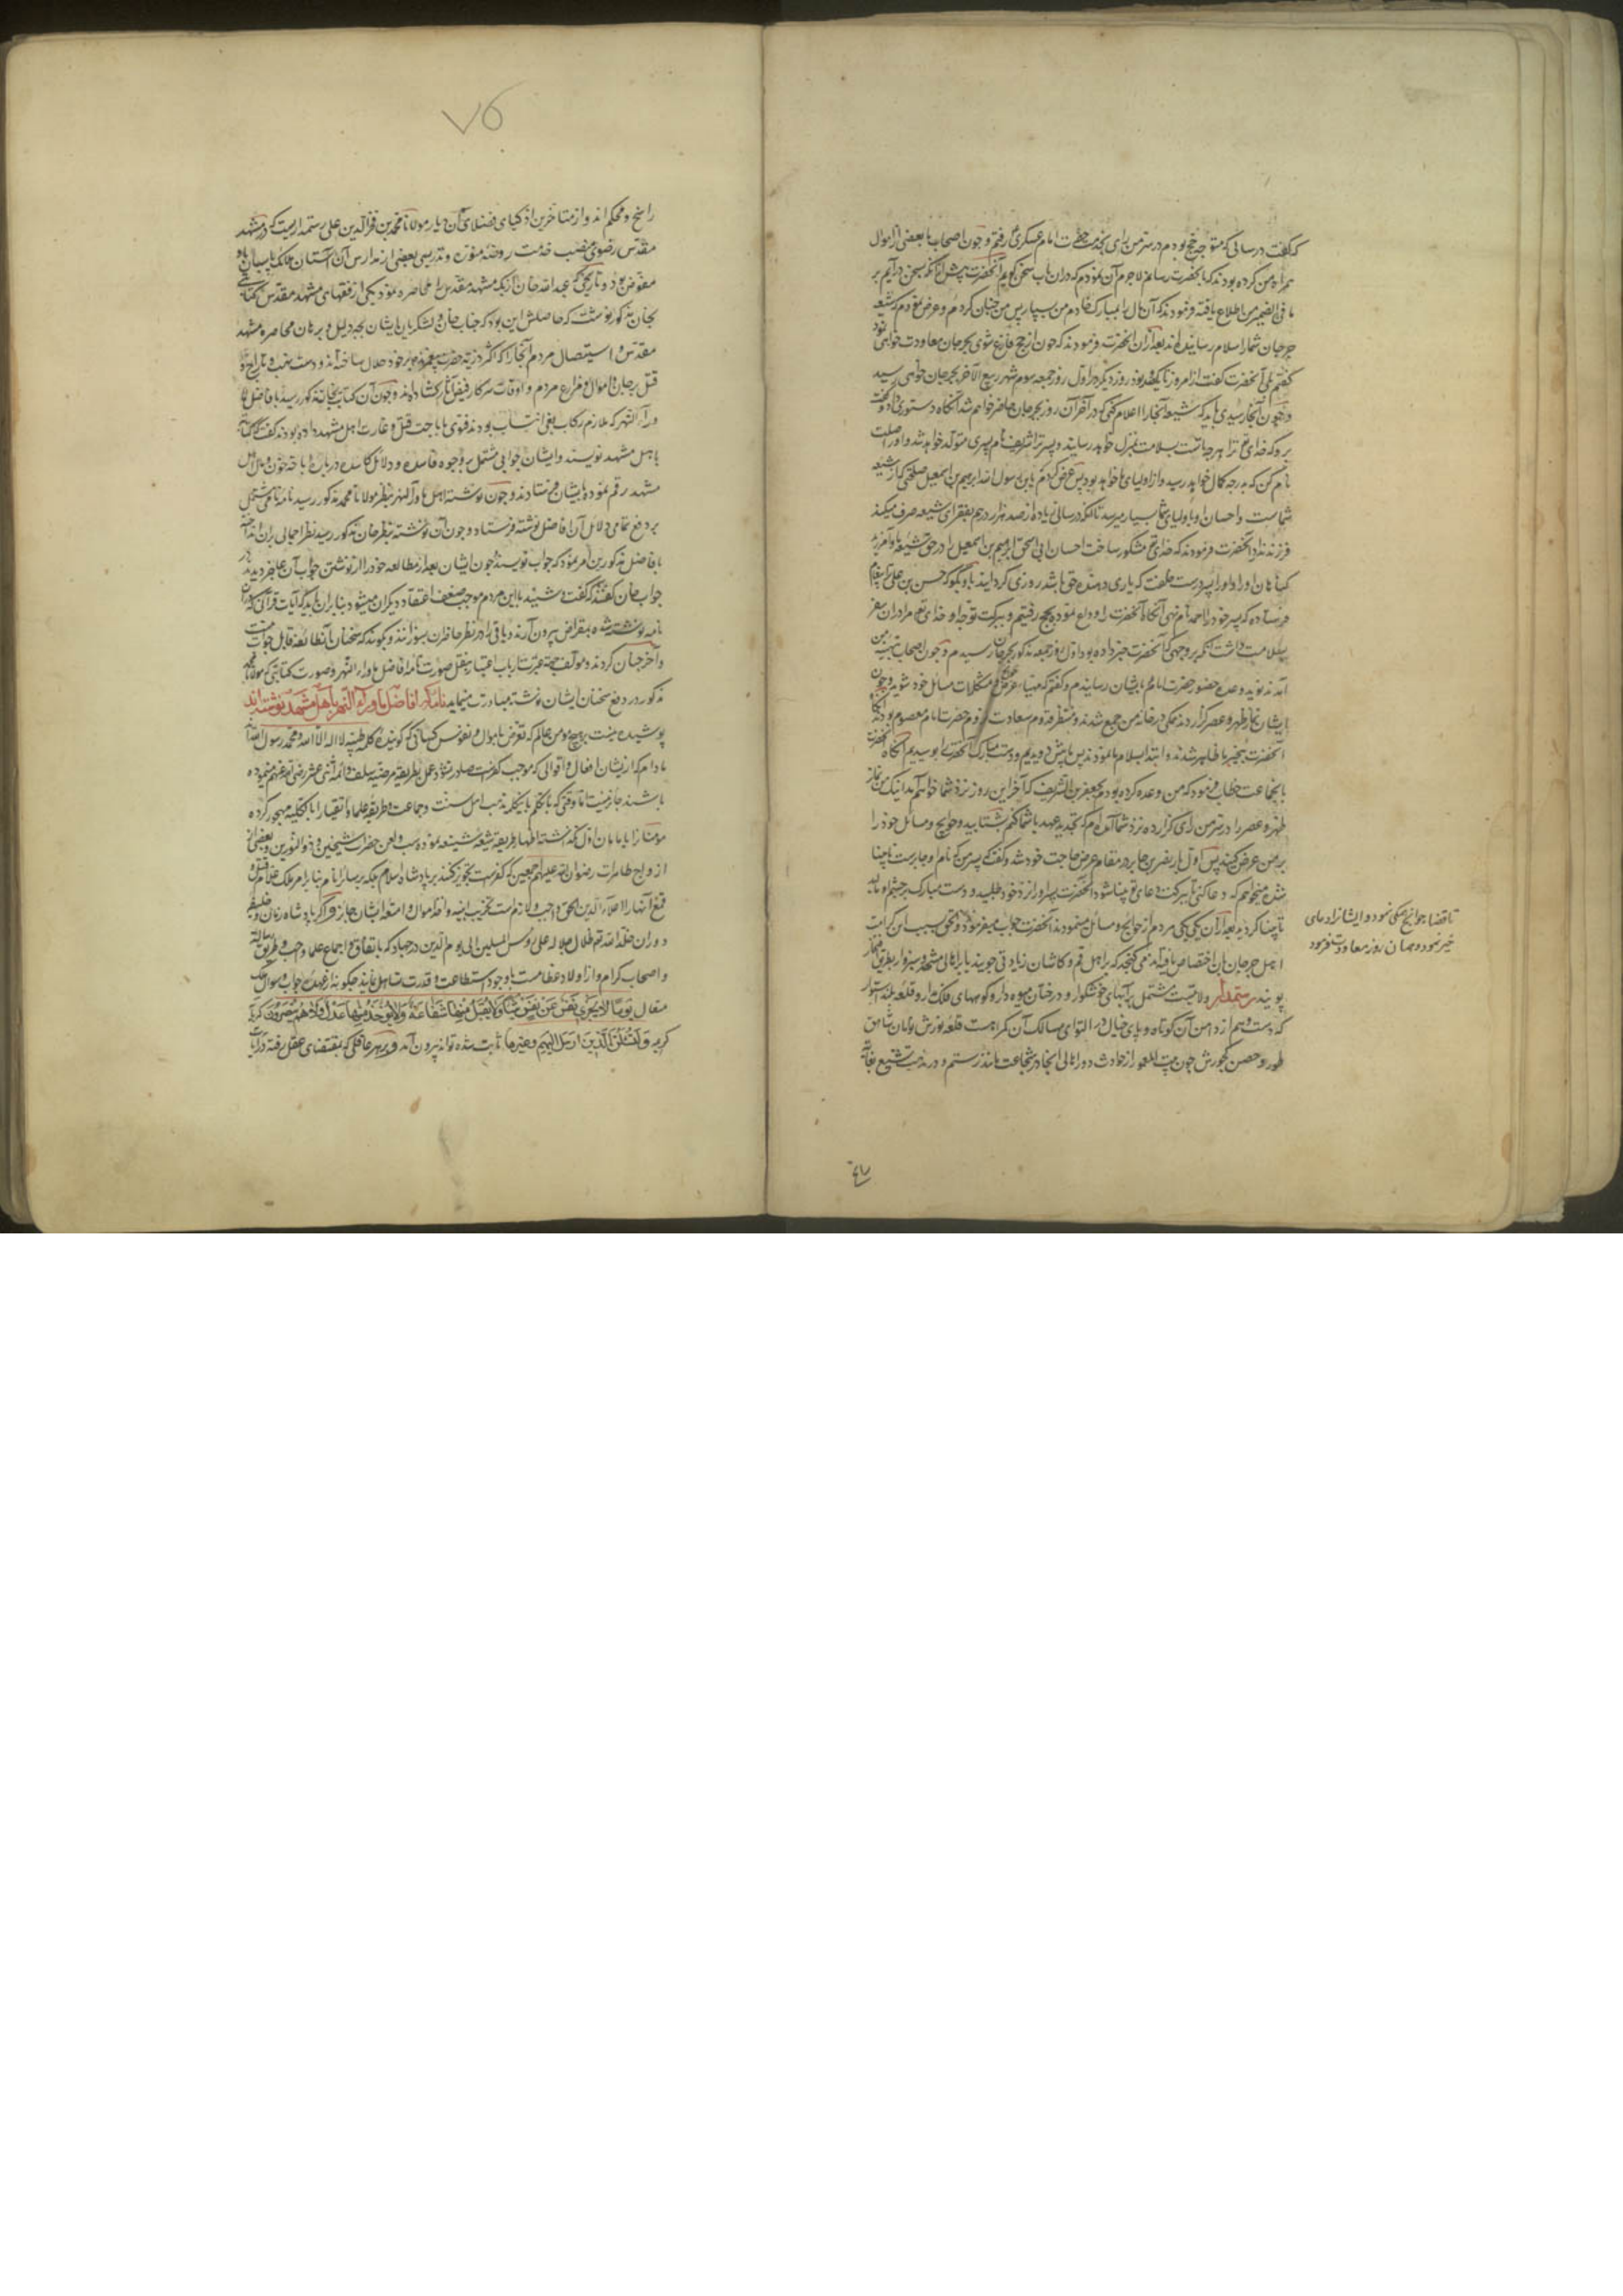 که گفت در سالی که متوجه حج بودم در سر من رای بخدمت حضرت امام عسکری رفتم و چون اصحاب ما بعضی از اموال
همراه من کرده بودند که بآنحضرت رسانم لاجرم آن نمودم که دران باب سخن گویم آنحضرت پیش از آنکه بسخن درآیم بر
ما فی الضمیر من اطلاع یافته فرمودند که آن مال را بمبارک خادم من بسپار پس من چنان کردم و عرض نمودم که شیعه
جرجان شما را سلام رسانیده اند بعد ازان آنحضرت فرمودند که چون از حج فارغ شوی بجرجان معاودت خواهی نمود
گفتم بلی آنحضرت گفت از امروز تا یکصد و نود روز دیگر در اول روز جمعه سوم شهر ربیع الآخر بجرجان خواهی رسید
و چون آنجا رسیدی باید که شیعه آنجا را اعلام کنی که در آخر آن روز بجرجان حاضر خواهم شد آنگاه دستوری داد و گفت
برو که خدای تع ترا و هرچه با تست بسلامت بمنزل خواهد رسانید و پسر ترا شریف نام پسری متولد خواهد شد و او را صلت
نام کن که بدرجه کمال خواهد رسید و از اولیای ما خواهد بود پس عرض کردم یا بن رسول الله ابراهیم بن اسمعیل خلقتی که از شیعه
شماست و احسان او باولیای شما بسیار میرسد تا آنکه در سالی زیاده از صد هزار درهم بفقرای شیعه صرف میکند
فرزند ندارد آنحضرت فرمودند که خدای تع مشکور ساخت احسان ابی اسحق ابراهیم بن اسمعیل را در حق شیعه ما و آمرزید
گناهان او را و او را پسر درست خلقت که یاری دهنده حق باشد روزی گردانید با و بگو که حسن بن علی پیغام
فرستاده که پسر خود را احمد نام نهی آنگاه آنحضرت را وداع نموده بحج رفتیم و ببرکت توجه او خدای تع مرا دران سفر
بسلامت داشت تا آنکه بر وجهی که آنحضرت خبر داده بود اول روز جمعه مذکور بجرجان رسیدم و چون اصحاب بتهنیت من
آمدند نوید وعده حضور حضرت امام بایشان رسانیدم و گفتم که مهیای عرض حوایج و مشکلات مسائل خود شوید و چون
ایشان نماز ظهر و عصر گزاردند همگی در خانه من جمع شدند و منتظر قدوم سعادت لزوم حضرت امام معصوم بودند ناگاه
آنحضرت بیخبر ما ظاهر شدند و ابتدا بسلام ما نمودند پس ما پیش دویدیم و دست مبارک آنحضرت را بوسیدیم آنگاه آنحضرت
با جماعت خطاب فرمود که من وعده کرده بودم بجعفر بن الشریف که آخر این روز نزد شما خواهم آمد اینک من نماز
ظهر و عصر را در سر من رای گزارده نزد شما آمده ام که تجدید عهد با شما کنم بشتابید و حوایج و مسائل خود را
بر من عرض کنید پس اول بار نضر بن جابر در مقام عرض حاجت خود شد و گفت که پسر من که نام او جابرست نابینا
شده میخواهم که دعا کنی تا ببرکت دعای تو بینا شود آنحضرت پسر او را نزد خود طلبید و دست مبارک بر چشم او مالید
تا بینا گردید بعد ازان یکی یکی مردم از حوایج و مسائل مینمودند آنحضرت جواب میفرمود
تا قضا حوایج همگی نمود و ایشانرا دعای
خیر نمود و همان روز معاودت فرمود
اهل جرجان باین اختصاص یافته اند می گنجد که بر اهل قم و کاشان زیادتی جویند با اهالی مشهد و سبزوار بطریق
پویند رستمدار ولایتیست مشتمل بر آبهای خوشگوار و درختان میوه دار و کوههای فلک مدار و قلعه بلند استوار
که دست وهم از دامن آن کوتاه و پای خیال در التوای مسالک آن گمراهست قلعه نورش بسان شاهق
طور و حصن کجورش چون بیت المعمور از حوادث دور اهالی آنجا در شجاعت مانند رستم و در مذهب تشیع بغایت
۷۶
راسخ و محکم اند و از متاخرین اذکیای فضلای آن دیار مولانا محمد بن فخرالدین علی رستمداریست که در مشهد
مقدس رضوی منصب خدمت روضه منوره و تدریس بعضی از مدارس آن آستان ملائک پاسبان باو
مفوض بود و تاریخی که عبدالله خان ازبک مشهد مقدس را محاصره نمود یکی از فقهای مشهد مقدس کتابتی
بخان مذکور نوشت که حاصلش این بود که جناب خان و لشکریان ایشان بچه دلیل و برهان محاصره مشهد
مقدس و استیصال مردم آنجا را که اکثر ذریه حضرت پیغمبرند بر خود حلال ساخته اند و دست نهب و تاراج و
قتل بر جان و اموال و مزارع مردم و اوقات سرکار فیض آثار گشاده اند و چون آن کتاب بخان مذکور رسید با فاضل
وراء النهر که ملازم رکاب بغی انتساب بودند و فتوی باباحت قتل و غارت اهل مشهد داده بودند گفت که کتابت
باهل مشهد نویسند و ایشان جوابی مشتمل بر وجوه فاسده و دلائل کاسده درباره اباحه خون و مال اهل
مشهد رقم نموده بایشان فرستادند و چون نوشته اهل ماوراء النهر بنظر مولانا محمد مذکور رسید نامه نامی مشتمل
بر دفع تمامی دلائل آن افاضل نوشته فرستاد و چون آن نوشته بنظر خان مذکور رسید نظر اجمالی بران انداخته
با فاضل مذکورین امر نمود که جواب نویسند چون ایشان بعد از مطالعه خود را از نوشتن جواب آن عاجز دیدند در
جواب خان گفتند که گفت و شنید با این مردم موجب ضعف اعتقاد دیگران میشود بنابران باید که آیات قرآنی که دران
نامه نوشته شده بمقراض بیرون آرند و باقی را در نظر حاضران بسوزانند و بگویند که سخنان آن طائفه قابل جواب نیست
و آخر چنان کردند و مولف جهة عبرت ارباب اعتبار بنقل صورت نامه افاضل ماوراء النهر و صورت کتابتی که مولانا محمد
مذکور در دفع سخنان ایشان نوشته مبادرت مینماید نامه که افاضل ماوراء النهر باهل مشهد نوشته اند
پوشیده نیست بر هیچ مومن عالم که تعرض باموال و نفوس کسانی که گوینده کلمه طیبه لا اله الا الله محمد رسول الله
مادام که از ایشان افعال و اقوالی که موجب کفرست صادر نشود و عمل بطریقه مرضیه سلف و ائمه اثنی عشر رضی الله عنهم مینموده
باشند جایز نیست تا وقتی که با تکلم بکلمه مذهب اهل سنت و جماعت و طریقه علما و اتقیا را بالکلیه مهجور کرده
اظهار طریقه شیعه شنیعه نموده سب و لعن حضرات شیخین و ذی النورین و بعضی از
ازواج طاهرات رضوان الله علیهم اجمعین که کفرست تجویز کنند بر پادشاه اسلام بلکه بر سایر انام بنا بر امر ملک علام قتل و
قمع آنها را لاعلاء الدین الحق واجب و لازم است و تخریب ابنیه و اخذ اموال و امتعه ایشان جایز و اگر پادشاه زمان و خلیفه
دوران خلد الله تع ظلال جلاله علی رؤس المسلمین الی یوم الدین در جهاد که باتفاق و اجماع علما واجب و طریق رسالت
و اصحاب کرام و از اولاد عظامست با وجود استطاعت و قدرت تساهل نمایند چگونه از عهده جواب و سوال ملک
متعال یوما لا تجزی نفس عن نفس شیئا ولا یقبل منها شفاعة ولا یؤخذ منها عدل ولا هم ینصرون که
کریمه ولنسئلن الذین ارسل الیهم وغیرها ثابت شده تواند بیرون آمد و بر هر عاقلی که بمقتضای عقل رفته